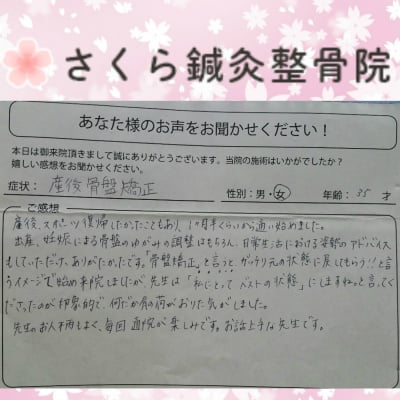 さくら鍼灸整骨院
あなた様のお声をお聞かせください！
本日は御来院頂きまして誠にありがとうございます。当院の施術はいかがでしたか？
嬉しい感想をお聞かせください。
症状: 産後骨盤矯正 性別:男・女 年齢: 35 才
ご感想
産後、スポーツ復帰したかったこともあり、1ヶ月半くらいから通い始めました。
出産、妊娠による骨盤のゆがみの調整はもちろん、日常生活における姿勢のアドバイス
もしていただけ、ありがたかったです。"骨盤矯正"と言うと、ガッツリ元の状態に戻してもらう!!と言
うイメージで始め来院しましたが先生は「私にとってベストの状態」にしますねっと言ってく
ださったのが印象的で、何だか肩の荷がおりた気がしました。
先生のお人柄もよく、毎回通院が楽しみです。お話上手な先生です。